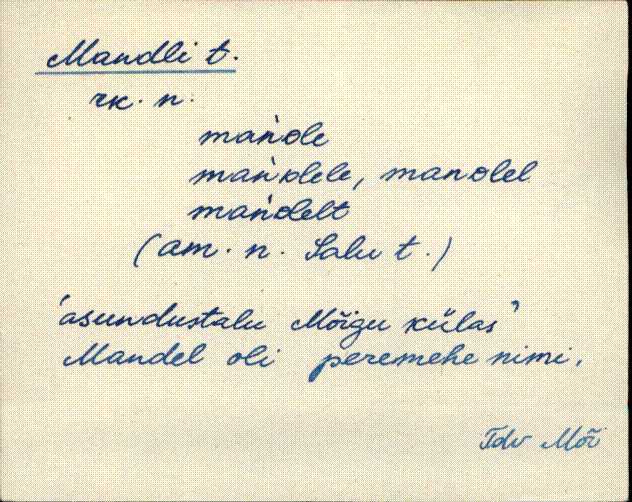 Mandli t.
rk. n.
mańdle
mańdlele, mandlel
mańdlelt
(am. n. Salu t.)
'asundustalu Mõigu külas'
Mandel oli peremehe nimi.
Mõi